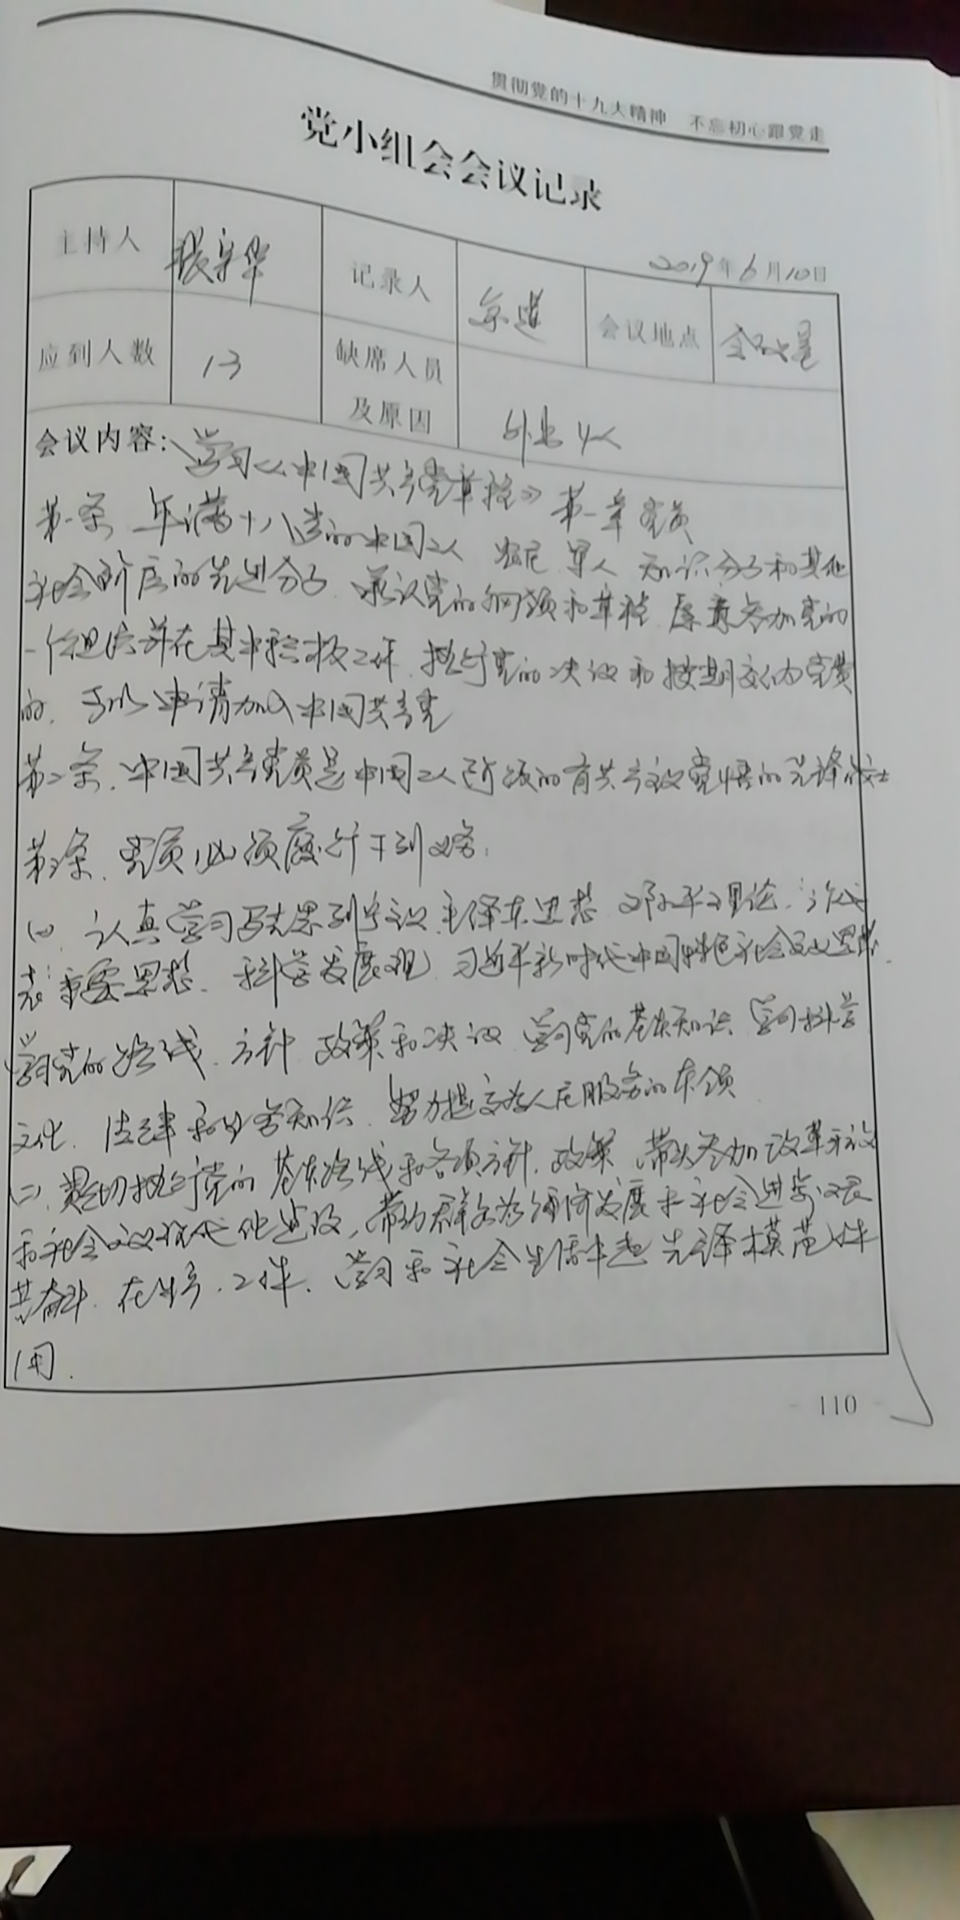 贯彻党的十九大精神 不忘初心跟党走
党小组会会议记录
2019年6月10日
主持人 记录人 会议地点 会议室
应到人数 13 缺席人员及原因 外出4人
会议内容:学习《中国共产党章程》第一章党员
第一条 年满十八岁的中国工人 农民 军人 知识分子和其他
社会阶层的先进分子 承认党的纲领和章程 愿意参加党的
一个组织并在其中积极工作 执行党的决议和按期交纳党费
的,可以申请加入中国共产党
第二条、中国共产党员是中国工人阶级的有共产主义觉悟的先锋战士
第三条、党员必须履行下列义务:
(一) 认真学习马克思列宁主义 毛泽东思想 邓小平理论 三个代
表重要思想、科学发展观、习近平新时代中国特色社会主义思想.
学习党的路线、方针 政策和决议 学习党的基本知识 学习科学
文化、法律和业务知识、努力提高为人民服务的本领
(二)贯彻执行党的基本路线和各项方针、政策、带头参加改革开放
和社会主义现代化建设,带动群众为经济发展和社会进步艰
苦奋斗 在生产、工作、学习和社会生活中起先锋模范作
用.
- 110 -